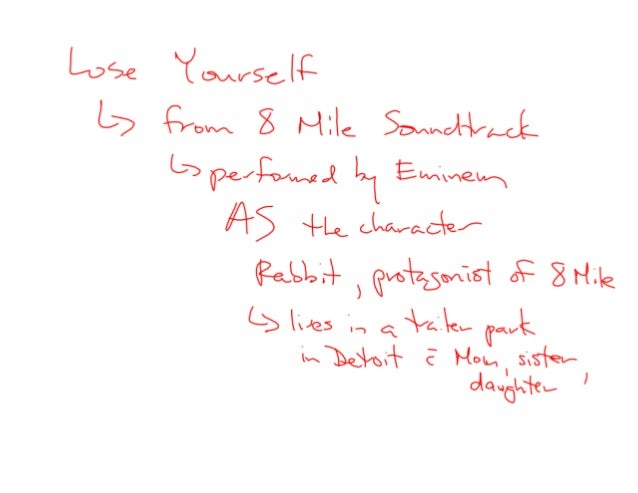 Lose Yourself
↳ from 8 Mile Soundtrack
↳ performed by Eminem
AS the character
Rabbit, protagonist of 8 Mile
↳ lives in a trailer park
in Detroit c̄ Mom, sister,
daughter,